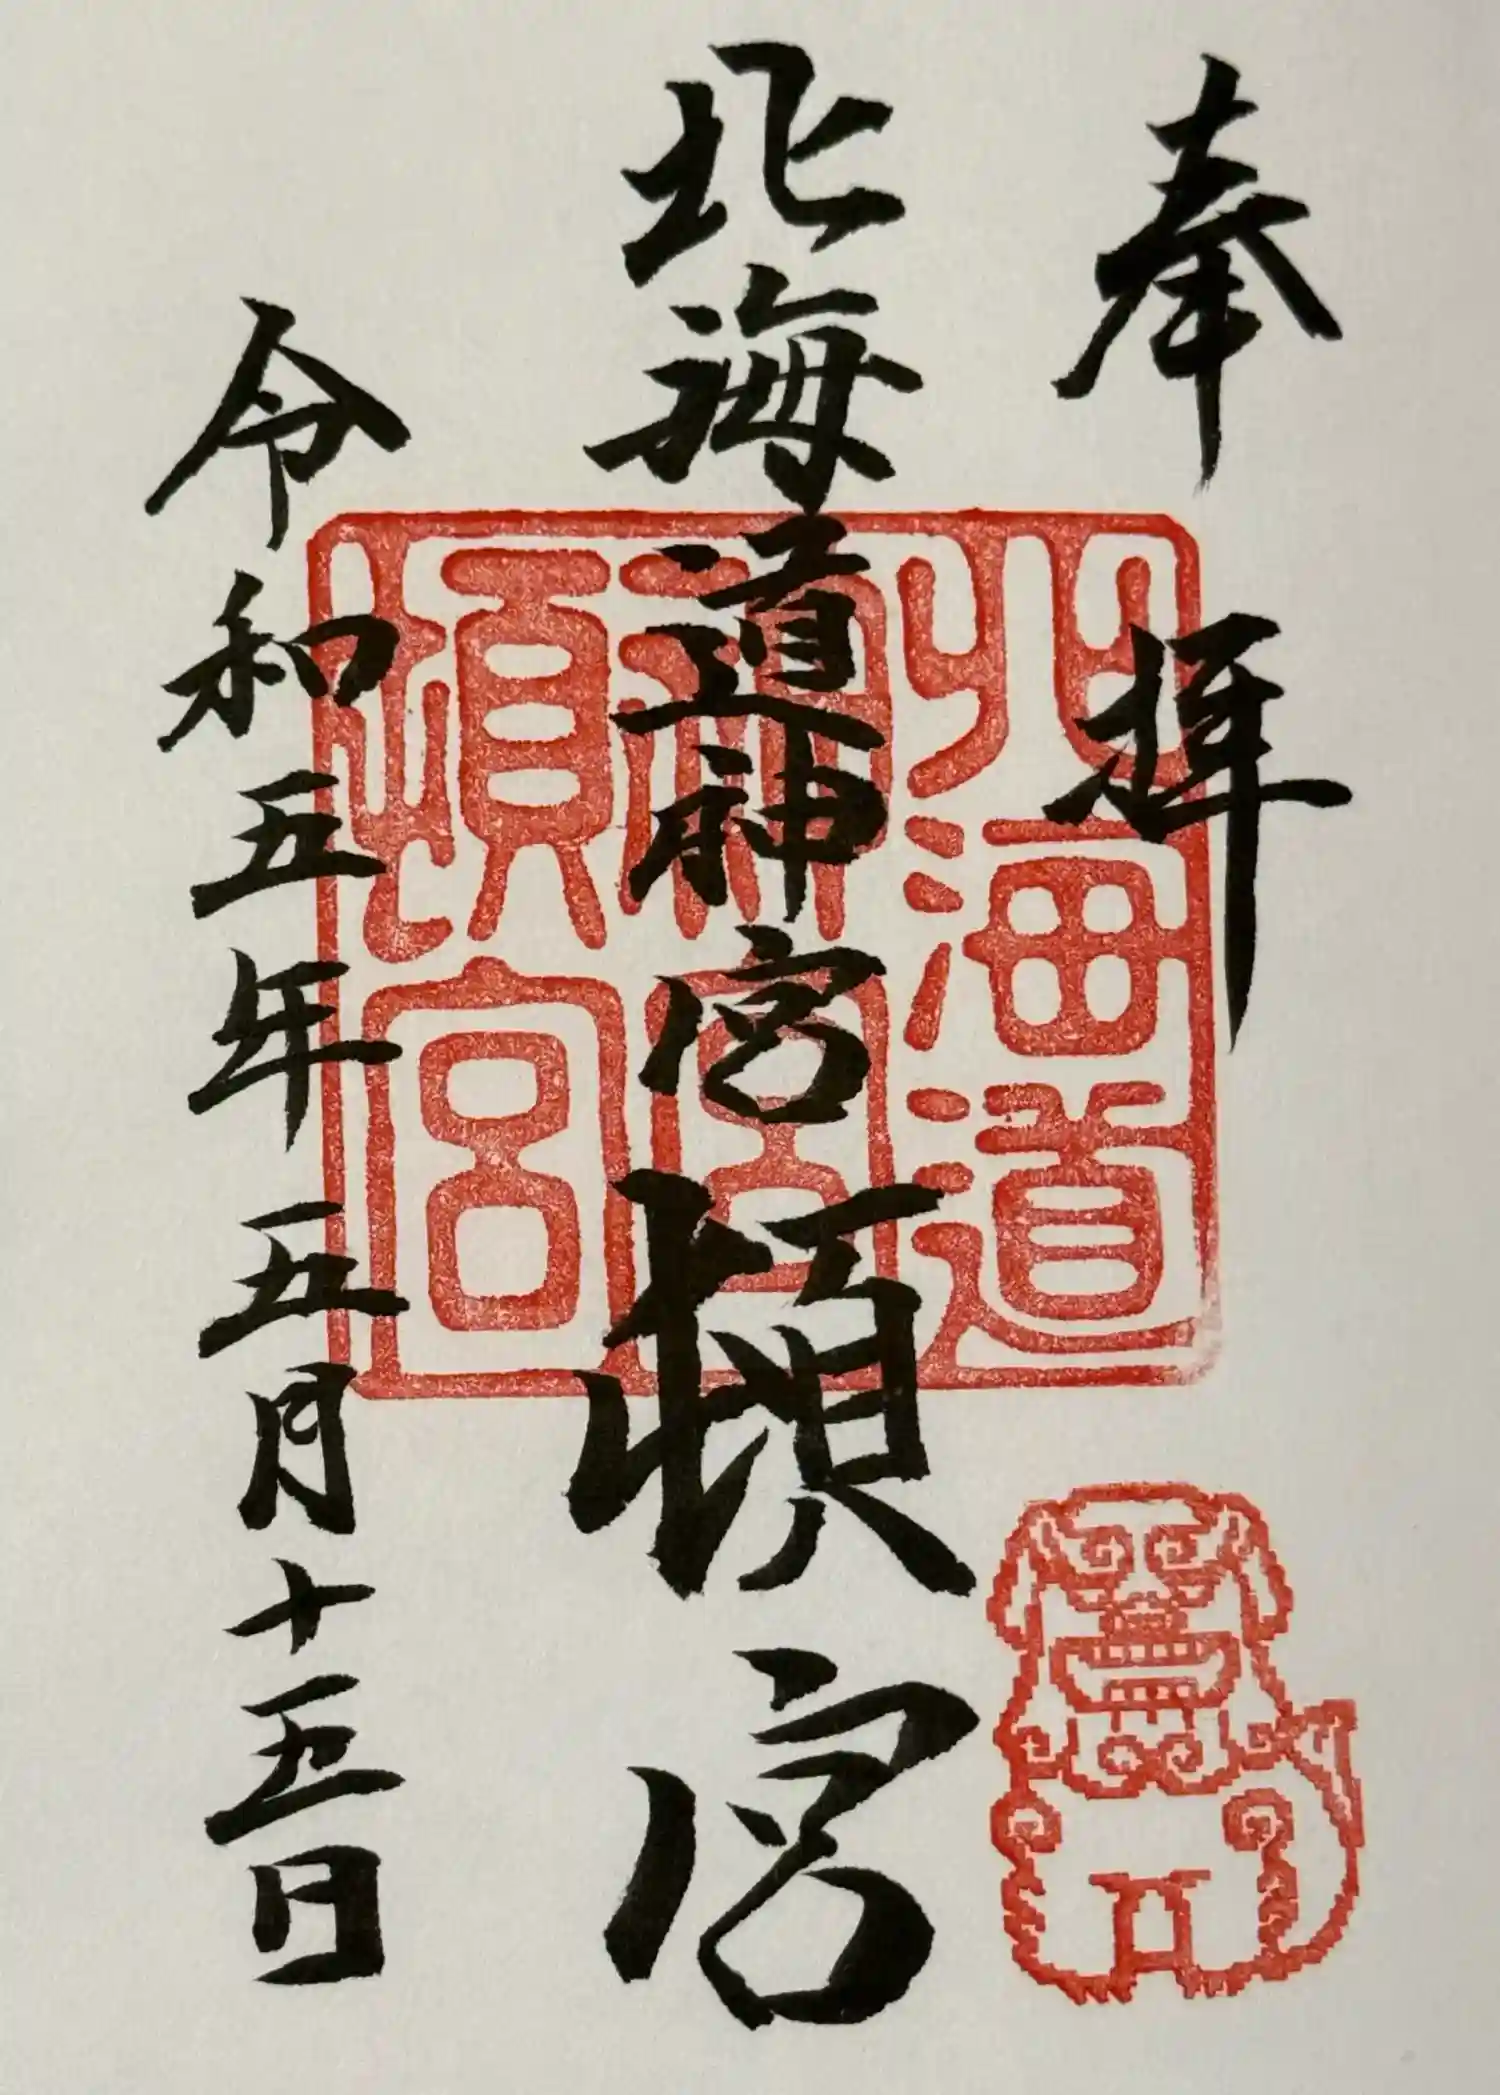 奉拝
北海道神宮頓宮
令和五年五月十五日
北海道
神宮
頓宮